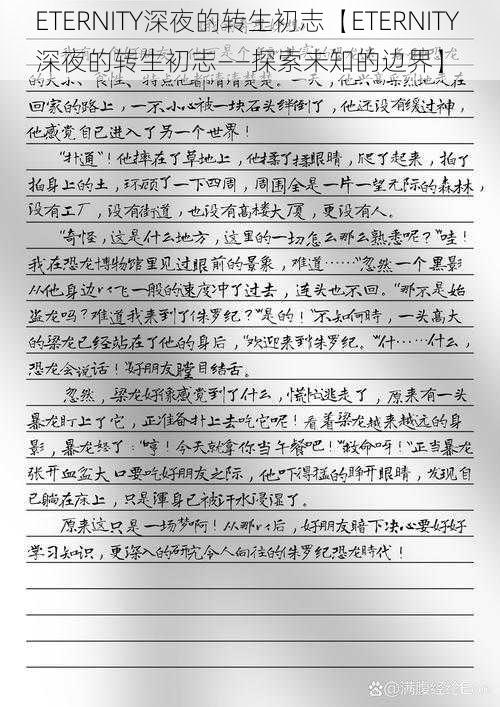 ETERNITY深夜的转生初志【ETERNITY
深夜的转生初志——探索未知的边界】
的大小、食性、特点他都清清楚楚。一天，他兴高采烈地走在
回家的路上，一不小心被一块石头绊倒了，他还没有缓过神，
他感觉自己进入了另一个世界！
“扑通”！他摔在了草地上，他揉了揉眼睛，爬了起来，拍了
拍身上的土，环顾了一下四周，周围全是一片一望无际的森林，
没有工厂，没有街道，也没有高楼大厦，更没有人。
“奇怪，这是什么地方，这里的一切怎么那么熟悉呢？”哇！
我在恐龙博物馆里见过眼前的景象，难道……”忽然一个黑影
从他身边以飞一般的速度冲了过去，连头也不回。“那不是始
盗龙吗？难道我来到了侏罗纪？”“是的！”不知何時，一头高大
的梁龙已经站在了他的身后，“欢迎来到侏罗纪。”“什……什么，
恐龙会说话！”好朋友瞠目结舌。
忽然，梁龙好像感觉到了什么，慌忙逃走了，原来有一头
暴龙盯上了它，正准备扑上去吃它呢！看着梁龙越来越远的身
影，暴龙怒了：“哼！今天就拿你当午餐吧！”“救命呀！”正当暴龙
张开血盆大口要吃好朋友之际，他吓得猛的睁开眼睛，发现自
己躺在床上，只是渾身已被汗水浸湿了。
原来这只是一场梦啊！从那以后，好朋友暗下决心要好好
学习知识，更深入的研究令人向往的侏罗纪恐龙時代！
@满腹经纶